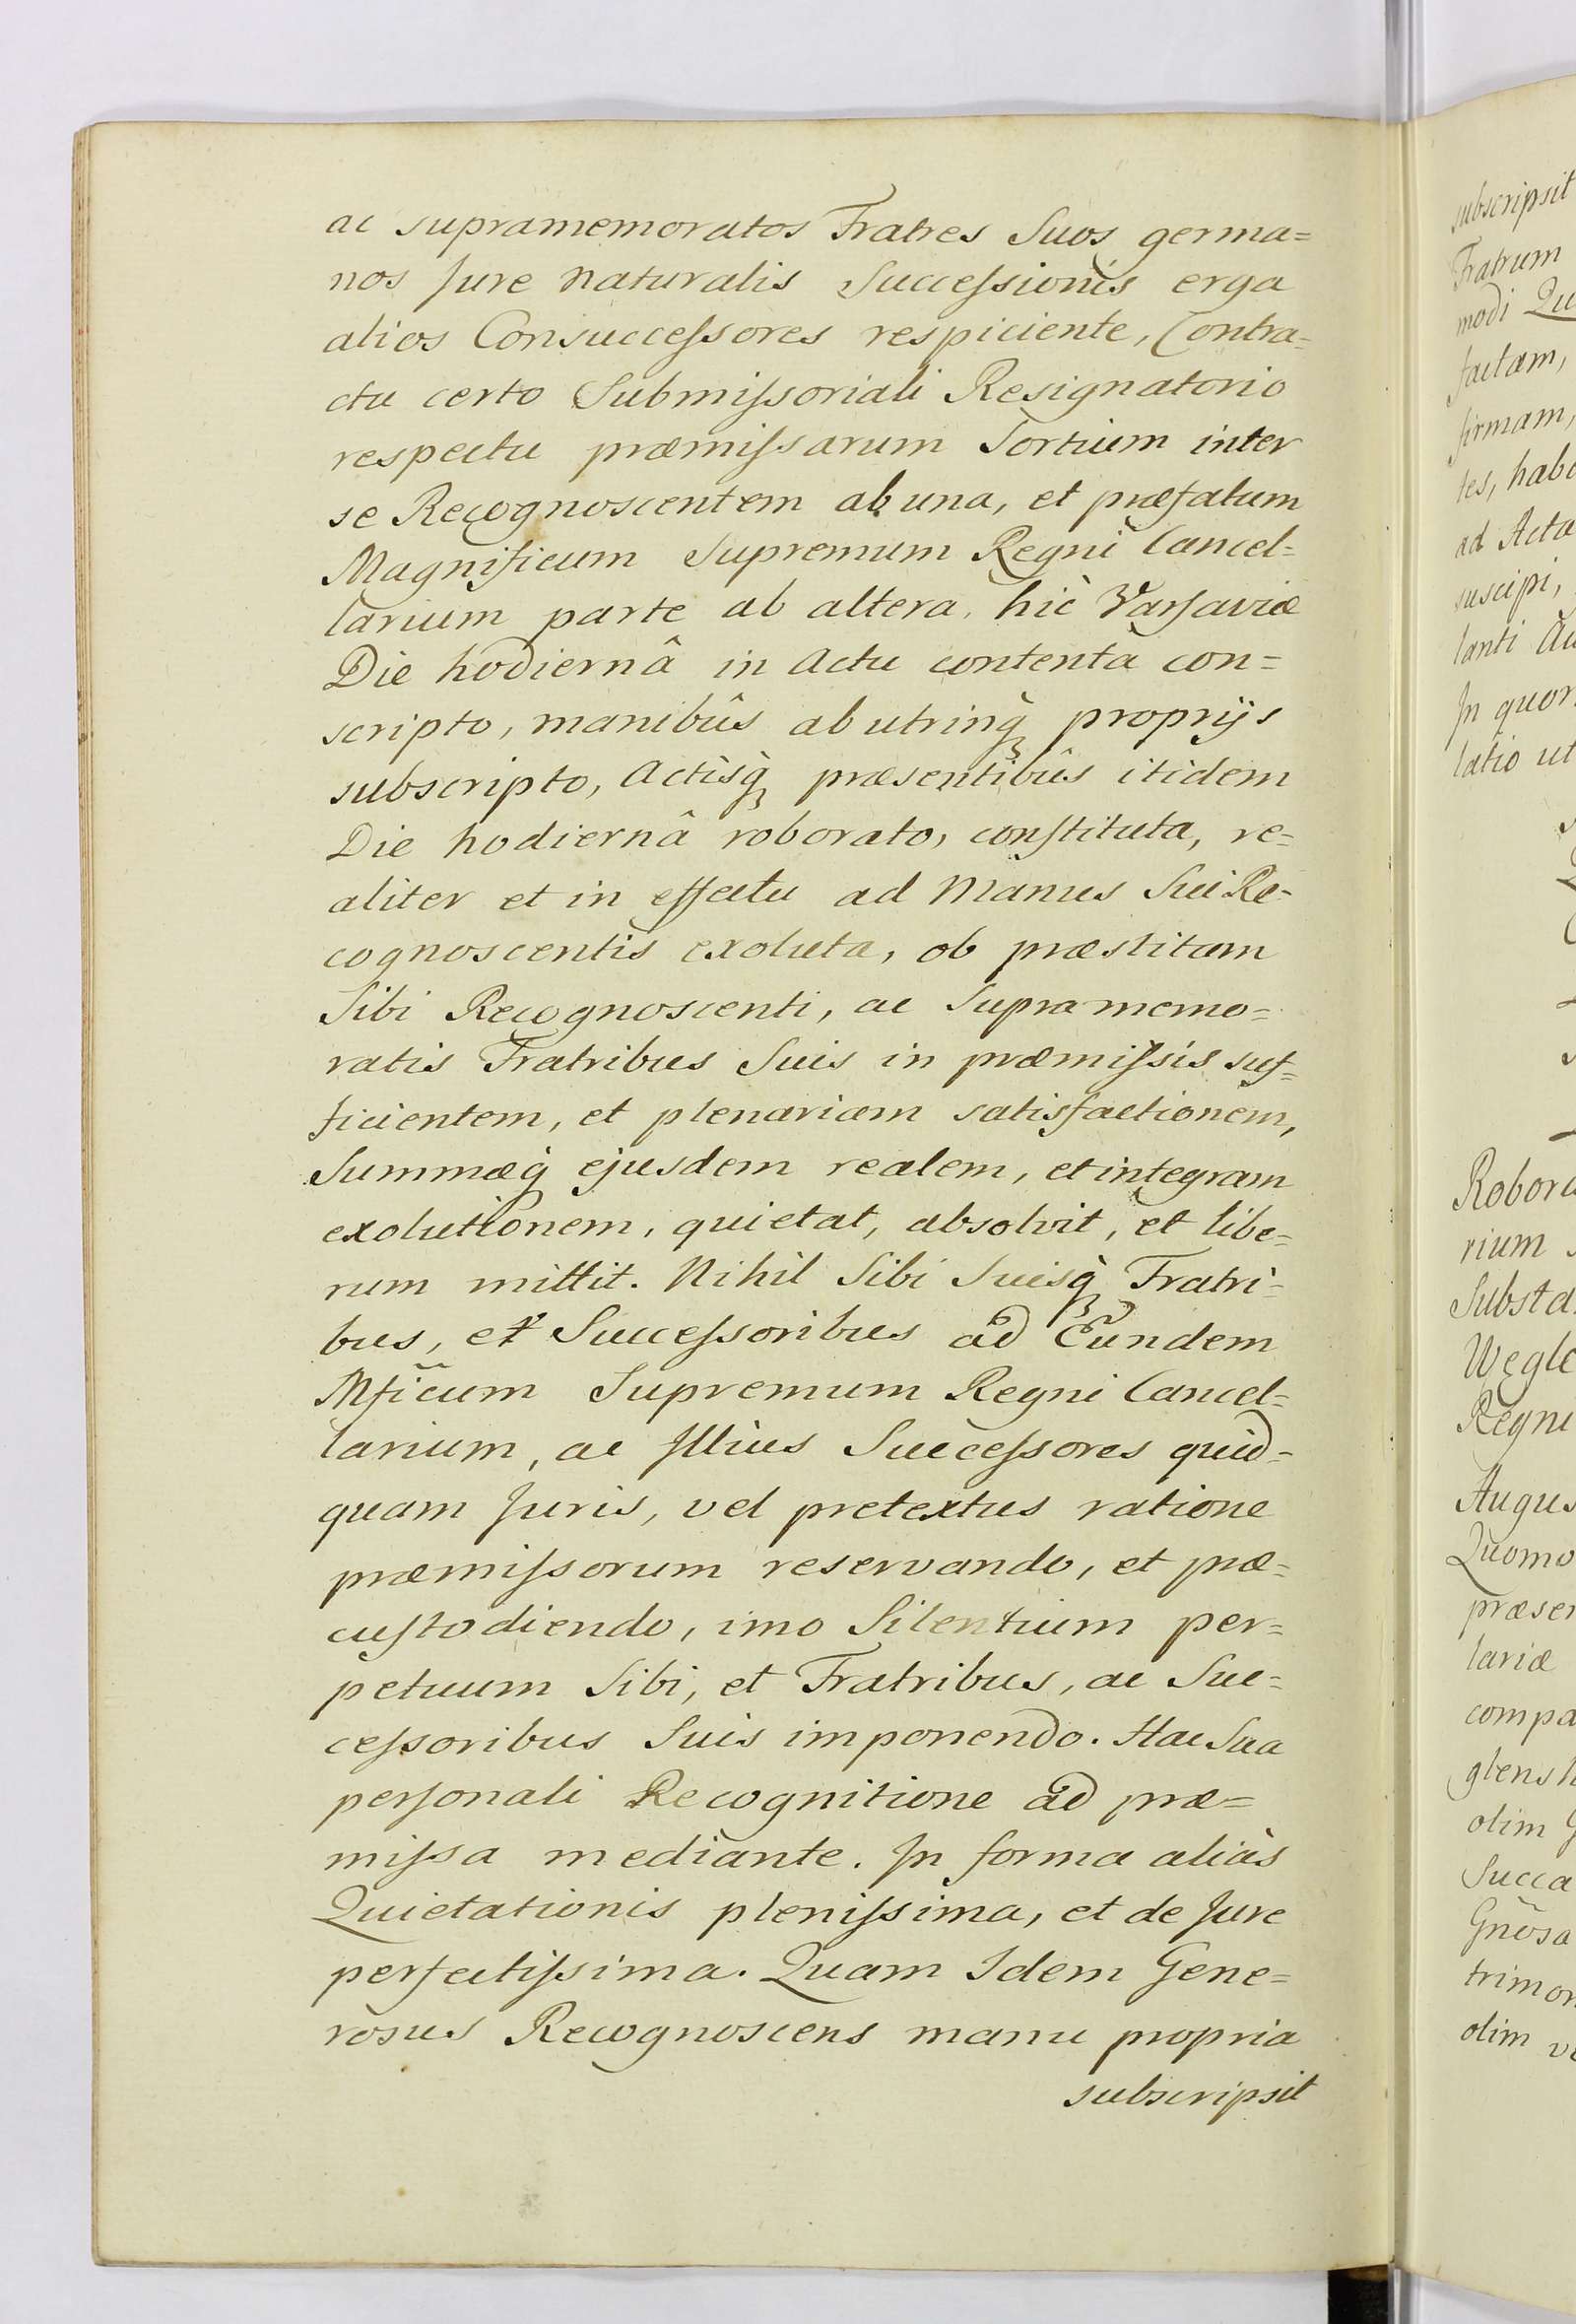 ac supramemoratos Fratres Suos germa=
nos Jure naturalis Successionis erga
alios Consuccessores respiciente, Contra=
ctu certo Submissoriali Resignatorio
respectu præmissarum Sortium inter
se Recognoscentem ab una, et præfatum
Magnificum Supremum Regni Cancel=
larium parte ab altera, hic Varsaviæ
Die hodiernâ in Actu contentà con=
scripto, manibûs ab utrinq̀ proprijs
subscripto, Actisq̀ præsentibûs itidem
Die hodiernâ roborato, constituta, re=
aliter et in effectu ad Manus Sui Re=
cognoscentis exoluta, ob præstitam
Sibi Recognoscenti, ac Supramemo=
ratis Fratribus Suis in præmissis suf=
ficientem, et plenariam satisfactionem,
Summæq̀ ejusdem realem, et integram
exolutionem, quietat, absolvit, et libe=
rum mittit. Nihil Sibi Suisq̀ Fratri=
bus, et Successoribus ad Eundem
Mficum Supremum Regni Cancel=
larium, ac Illius Successores quid=
quam Juris, vel pretextus ratione
præmissorum reservando, et præ=
custodiendo, imo Silentium per=
petuum Sibi, et Fratribus, ac Suc=
cessoribus Suis imponendo. Hac Sua
personali Recognitione ad præ=
missa mediante. In forma aliàs
Quietationis plenissima, et de Jure
perfectissima. Quam Idem Gene=
rosus Recognoscens manu propria
subscripsit
subscripsit
Fratrum
modi
factam,
firmam,
ad Acta
suscipi,
lanti
In quor
latio ut
rium
Regni
Augus
Quomo
præsen
lariæ
compa
olim
Succa
trimon
olim